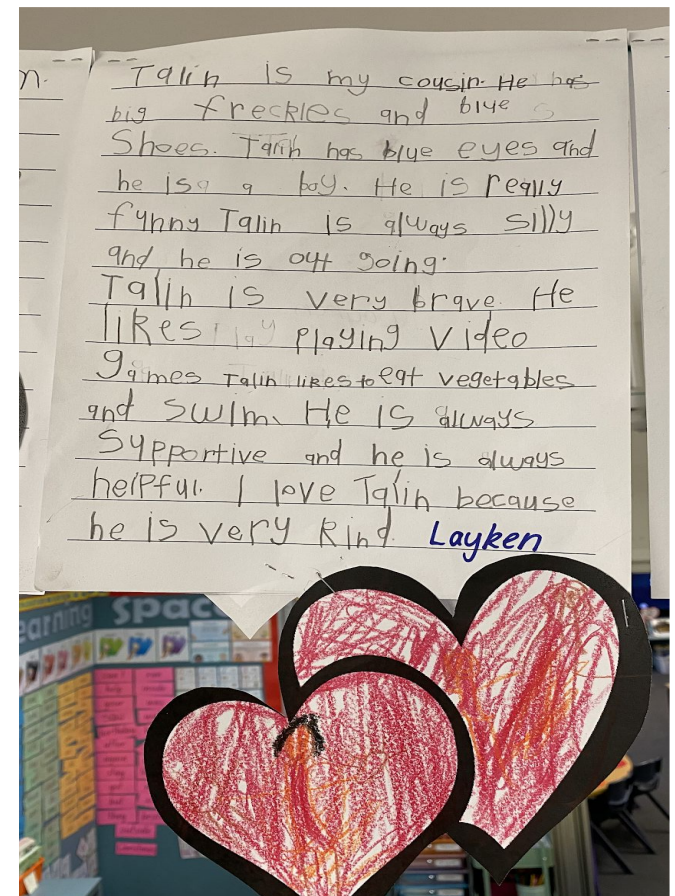 n.
Talin is my cousin. He has
big freckles and blue
Shoes. Talin has blue eyes and
he is a boy. He is really
funny Talin is always silly
and he is out going.
Talin is very brave. He
likes playing video
games Talin likes to eat vegetables
and swim. He is always
supportive and he is always
helpful. I love Talin because
he is very kind. Layken
earning
spac